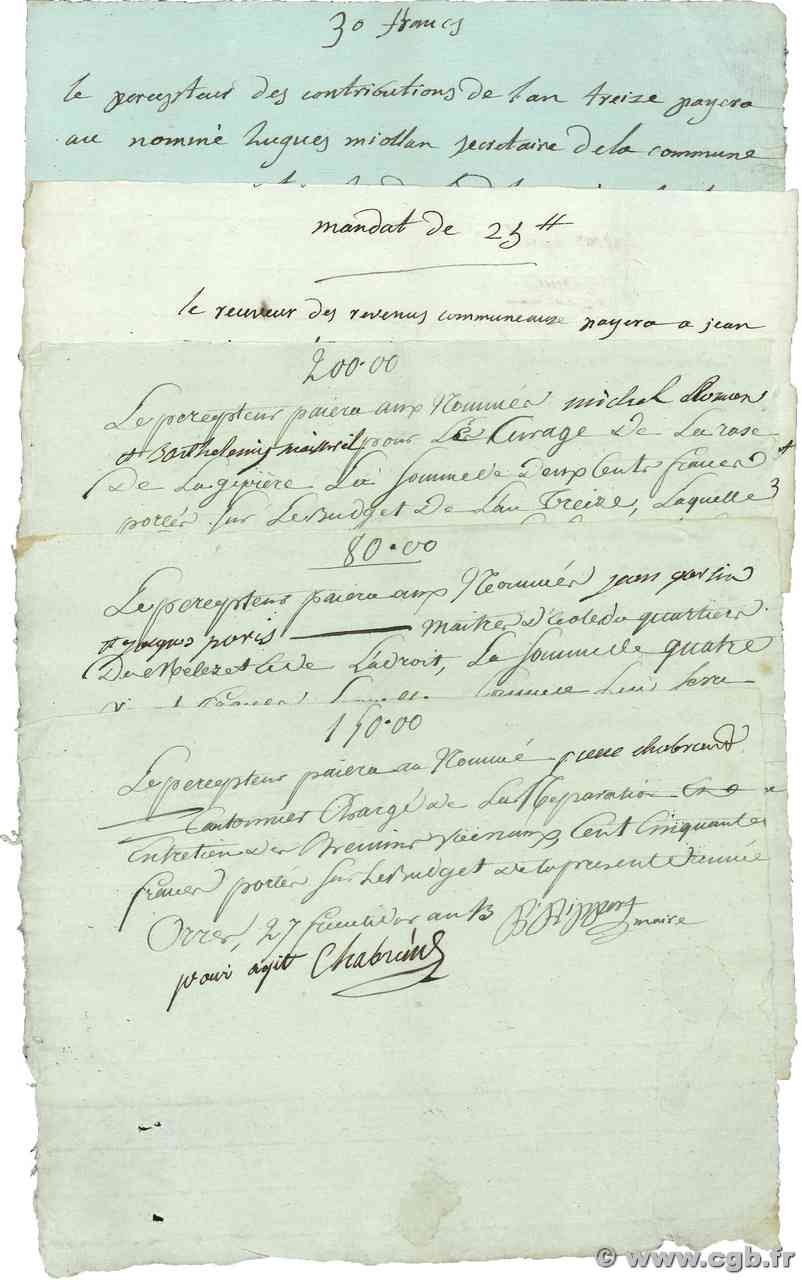 30 francs
le percepteur des contributions de lan treize payera
au nommé hugues miollan secretaire de la commune
mandat de 25 tt
le receveur des revenus communeaux payera a jean
200.00
Le percepteur paiera aux Nommés michel
& Barthelemy pour Le Curage De La rase
De Lagiviere La Somme de deux Cents francs
portés sur Le Budget De L'an Treize, Laquelle
80.00
Le percepteur paiera aux Nommés jean garsin
& jaques paris maitres d'Ecole du quartier
Du Melezet & de L'adroit, La Somme de quatre
150.00
Le percepteur paiera au Nommé pierre chabrand
Cantonnier Chargé de La Reparation
Entretien des Chemins Vicinaux Cent Cinquante
francs portés sur Le Budget de la presente année
Orres, 27 fructidor an 13 maire
pour aqit Chabrand
© www.cgb.fr